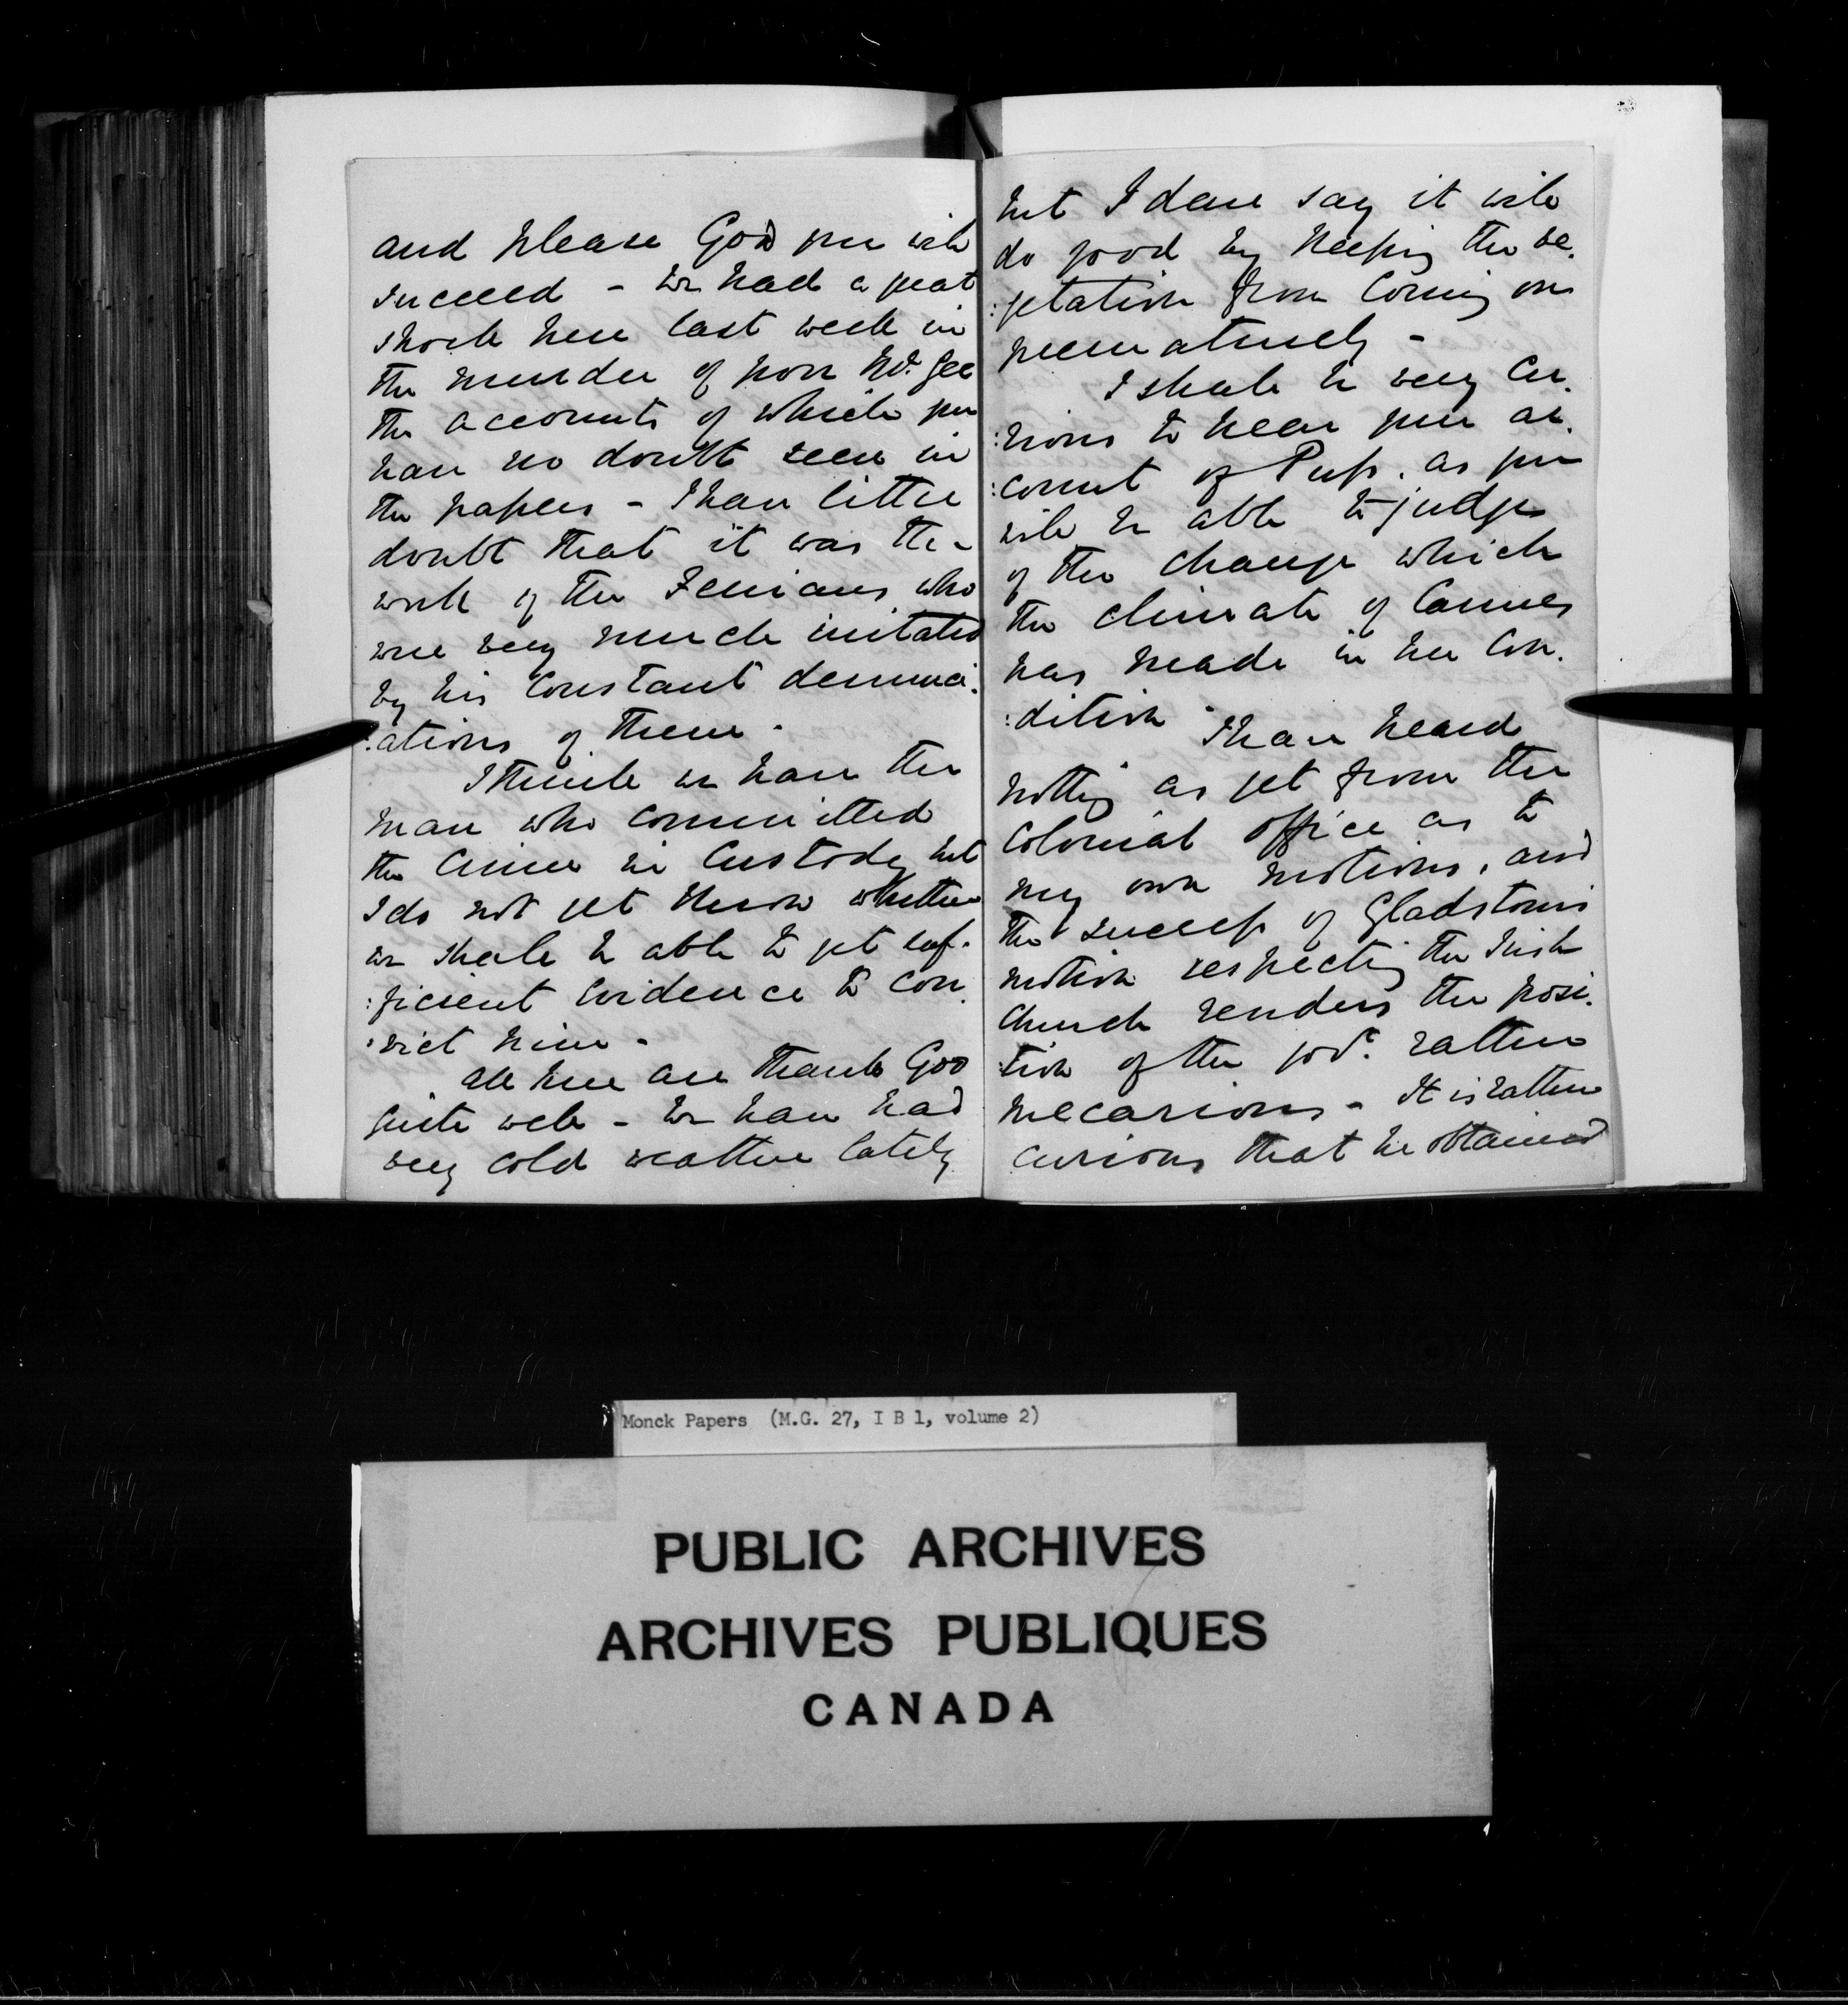 and please God you will
succeed - we had a great
shock here last week in
the murder of poor McGee
the accounts of which you
have no doubt seen in
the papers - I have little
doubt that it was the
work of the Fenians who
were very much irritated
by his constant denunci:
:ations of them.
I think we have the
man who committed
the crime in custody but
I do not yet know whether
we shall be able to get suf-
:ficient evidence to con.
:vict him -
all here are thank God
quite well - We have had
very cold weather lately
but I dare say it will
do good by keeping the ve.
:getation from coming on
prematurely -
I shall be very cu.
:rious to hear your ac.
:count of Puss. as you
will be able to judge
of the change which
the climate of Cannes
has made in her con.
:dition - I have heard
nothing as yet from the
Colonial office as to
my own motions, and
the success of Gladstone's
motion respecting the Irish
Church renders the posi.
:tion of the govt. rather
precarious - It is rather
curious that he obtained
Monck Papers (M.G. 27, I B 1, volume 2)
PUBLIC ARCHIVES
ARCHIVES PUBLIQUES
CANADA